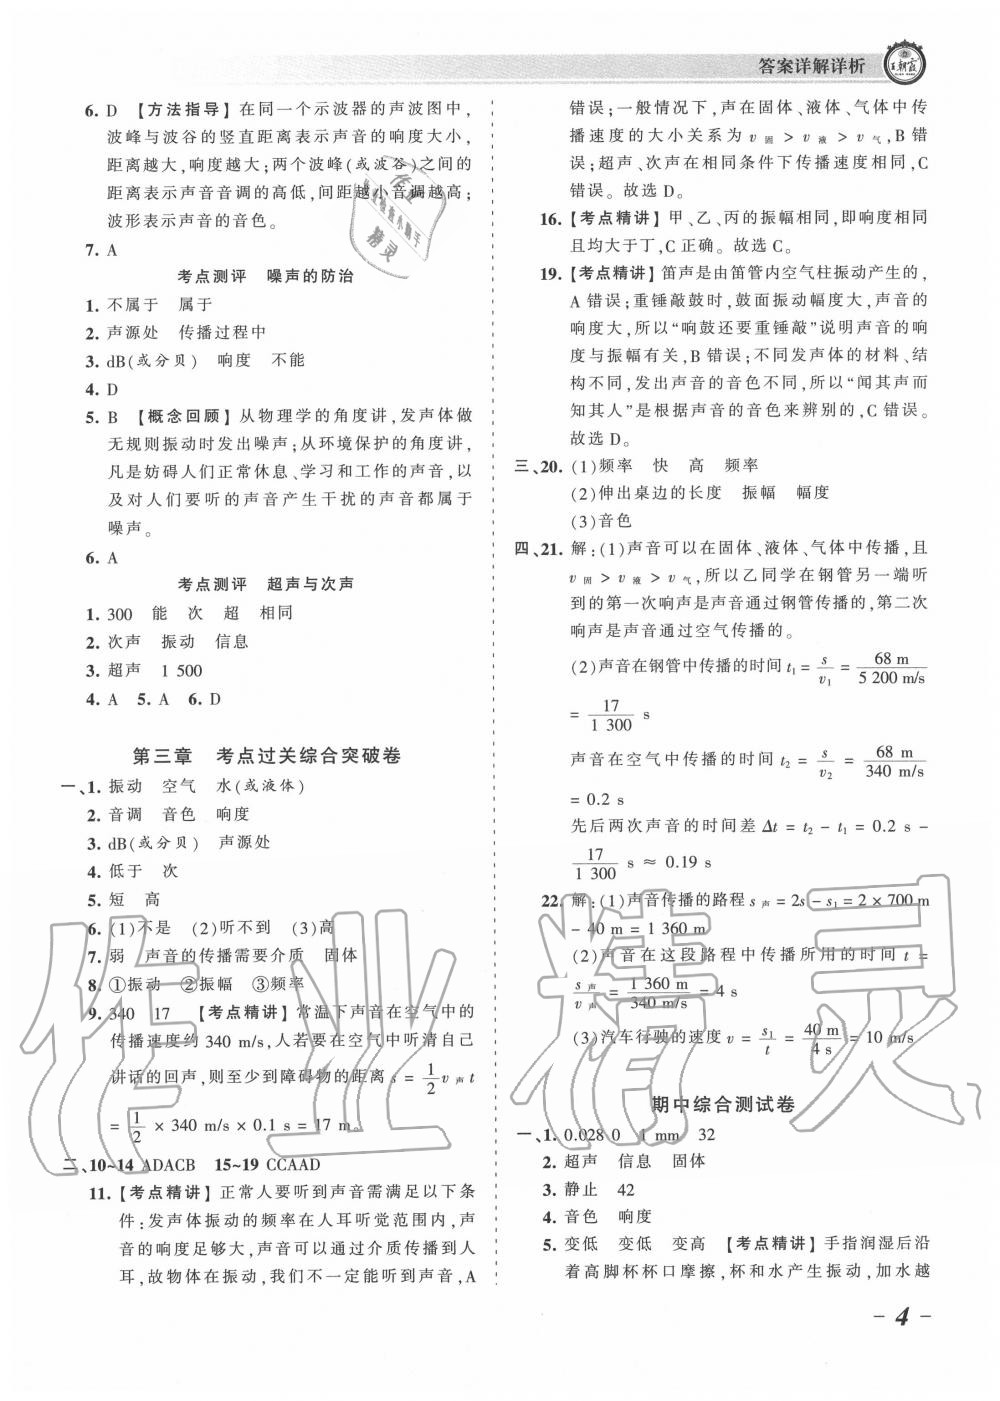 答案详解详析
王朝霞
6. D 【方法指导】在同一个示波器的声波图中,
波峰与波谷的竖直距离表示声音的响度大小,
距离越大,响度越大;两个波峰(或波谷)之间的
距离表示声音音调的高低,间距越小音调越高;
波形表示声音的音色。
7. A
考点测评 噪声的防治
1. 不属于 属于
2. 声源处 传播过程中
3. dB(或分贝) 响度 不能
4. D
5. B 【概念回顾】从物理学的角度讲,发声体做
无规则振动时发出噪声;从环境保护的角度讲,
凡是妨碍人们正常休息、学习和工作的声音,以
及对人们要听的声音产生干扰的声音都属于
噪声。
6. A
考点测评 超声与次声
1. 300 能 次 超 相同
2. 次声 振动 信息
3. 超声 1 500
4. A 5. A 6. D
第三章 考点过关综合突破卷
一、1. 振动 空气 水(或液体)
2. 音调 音色 响度
3. dB(或分贝) 声源处
4. 低于 次
5. 短 高
6. (1)不是 (2)听不到 (3)高
7. 弱 声音的传播需要介质 固体
8. ①振动 ②振幅 ③频率
9. 340 17 【考点精讲】常温下声音在空气中的
传播速度约 340 m/s,人若要在空气中听清自己
讲话的回声,则至少到障碍物的距离 s = 1/2 v声 t
= 1/2 × 340 m/s × 0.1 s = 17 m。
二、10~14 ADACB 15~19 CCAAD
11. 【考点精讲】正常人要听到声音需满足以下条
件:发声体振动的频率在人耳听觉范围内,声
音的响度足够大,声音可以通过介质传播到人
耳,故物体在振动,我们不一定能听到声音,A
错误;一般情况下,声在固体、液体、气体中传
播速度的大小关系为 v固 > v液 > v气,B 错
误;超声、次声在相同条件下传播速度相同,C
错误。故选 D。
16. 【考点精讲】甲、乙、丙的振幅相同,即响度相同
且均大于丁,C 正确。故选 C。
19. 【考点精讲】笛声是由笛管内空气柱振动产生的,
A 错误;重锤敲鼓时,鼓面振动幅度大,声音的
响度大,所以“响鼓还要重锤敲”说明声音的响
度与振幅有关,B 错误;不同发声体的材料、结
构不同,发出声音的音色不同,所以“闻其声而
知其人”是根据声音的音色来辨别的,C 错误。
故选 D。
三、20. (1)频率 快 高 频率
(2)伸出桌边的长度 振幅 幅度
(3)音色
四、21. 解:(1)声音可以在固体、液体、气体中传播,且
v固 > v液 > v气,所以乙同学在钢管另一端听
到的第一次响声是声音通过钢管传播的,第二次
响声是声音通过空气传播的。
(2)声音在钢管中传播的时间 t₁ = s/v₁ = 68 m/5 200 m/s
= 17/1 300 s
声音在空气中传播的时间 t₂ = s/v₂ = 68 m/340 m/s
= 0.2 s
先后两次声音的时间差 Δt = t₂ - t₁ = 0.2 s -
17/1 300 s ≈ 0.19 s
22. 解:(1)声音传播的路程 s声 = 2s - s₁ = 2 × 700 m
- 40 m = 1 360 m
(2)声音在这段路程中传播所用的时间 t =
s声/v声 = 1 360 m/340 m/s = 4 s
(3)汽车行驶的速度 v = s₁/t = 40 m/4 s = 10 m/s
期中综合测试卷
一、1. 0.028 0 1 mm 32
2. 超声 信息 固体
3. 静止 42
4. 音色 响度
5. 变低 变低 变高 【考点精讲】手指润湿后沿
着高脚杯杯口摩擦,杯和水产生振动,加水越
- 4 -
作业精灵